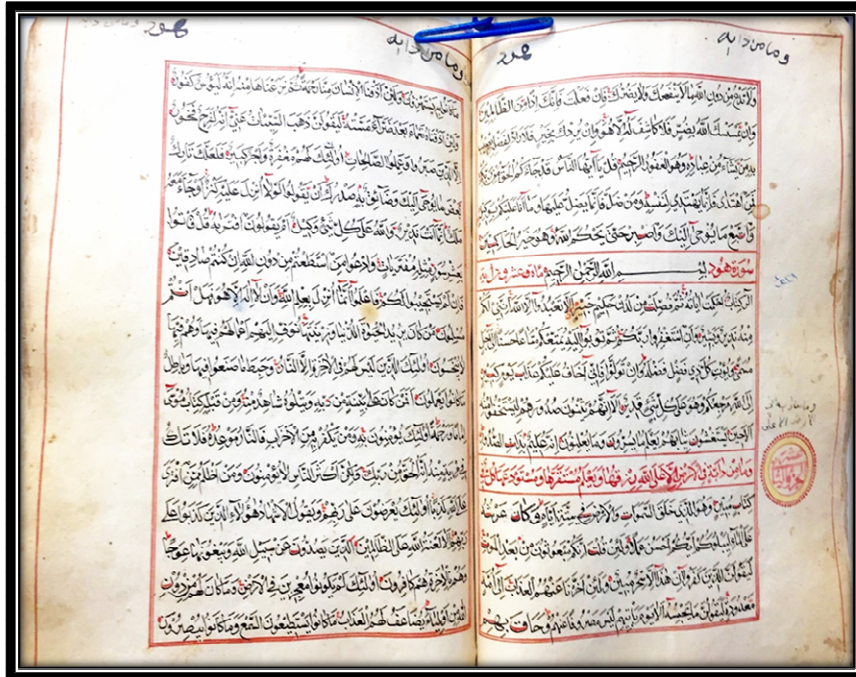 وما من دابة
هود
ولا تدع من دون الله ما لا ينفعك ولا يضرك فان فعلت فانك اذا من الظالمين
وان يمسسك الله بضر فلا كاشف له الا هو وان يردك بخير فلا راد لفضله يصيب
به من يشاء من عباده وهو الغفور الرحيم قل يا ايها الناس قد جاءكم الحق من ربكم
فمن اهتدى فانما يهتدي لنفسه ومن ضل فانما يضل عليها وما انا عليكم بوكيل
واتبع ما يوحى اليك واصبر حتى يحكم الله وهو خير الحاكمين
سورة هود بسم الله الرحمن الرحيم مائة وعشرون
الر كتاب احكمت اياته ثم فصلت من لدن حكيم خبير الا تعبدوا الا الله انني لكم
منه نذير وبشير وان استغفروا ربكم ثم توبوا اليه يمتعكم متاعا حسنا الى اجل
مسمى ويؤت كل ذي فضل فضله وان تولوا فاني اخاف عليكم عذاب يوم كبير
الى الله مرجعكم وهو على كل شيء قدير الا انهم يثنون صدورهم ليستخفوا منه
الا حين يستغشون ثيابهم يعلم ما يسرون وما يعلنون انه عليم بذات الصدور
وما من دابة في الارض الا على الله رزقها ويعلم مستقرها ومستودعها كل في
كتاب مبين وهو الذي خلق السموات والارض في ستة ايام وكان عرشه
على الماء ليبلوكم ايكم احسن عملا ولئن قلت انكم مبعوثون من بعد الموت
ليقولن الذين كفروا ان هذا الا سحر مبين ولئن اخرنا عنهم العذاب الى امة
معدودة ليقولن ما يحبسه الا يوم ياتيهم ليس مصروفا عنهم وحاق بهم
وما من دابة
هود
ما كانوا به يستهزؤن ولئن اذقنا الانسان منا رحمة ثم نزعناها منه انه ليؤس كفور
ولئن اذقناه نعماء بعد ضراء مسته ليقولن ذهب السيئات عني انه لفرح فخور
الا الذين صبروا وعملوا الصالحات اولئك لهم مغفرة واجر كبير فلعلك تارك
بعض ما يوحى اليك وضائق به صدرك ان يقولوا لولا انزل عليه كنز او جاء معه
ملك انما انت نذير والله على كل شيء وكيل ام يقولون افتريه قل فاتوا
بعشر سور مثله مفتريات وادعوا من استطعتم من دون الله ان كنتم صادقين
فان لم يستجيبوا لكم فاعلموا انما انزل بعلم الله وان لا اله الا هو فهل انتم
مسلمون من كان يريد الحيوة الدنيا وزينتها نوف اليهم اعمالهم فيها وهم فيها
لا يبخسون اولئك الذين ليس لهم في الاخرة الا النار وحبط ما صنعوا فيها وباطل
ما كانوا يعملون افمن كان على بينة من ربه ويتلوه شاهد منه ومن قبله كتاب موسى
اماما ورحمة اولئك يؤمنون به ومن يكفر به من الاحزاب فالنار موعده فلا تك
في مرية منه انه الحق من ربك ولكن اكثر الناس لا يؤمنون ومن اظلم ممن افترى
على الله كذبا اولئك يعرضون على ربهم ويقول الاشهاد هؤلاء الذين كذبوا على
ربهم الا لعنة الله على الظالمين الذين يصدون عن سبيل الله ويبغونها عوجا
وهم بالاخرة هم كافرون اولئك لم يكونوا معجزين في الارض وما كان لهم من دون
الله من اولياء يضاعف لهم العذاب ما كانوا يستطيعون السمع وما كانوا يبصرون